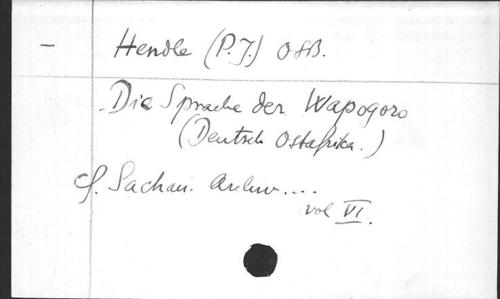 — Hendle (P. J.) OSB.
Die Sprache der Wapogoro
(Deutsch Ostafrika.)
cf. Sachau. Archiv....
vol VI.